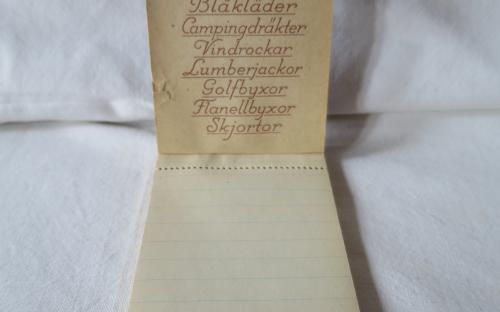 Blåkläder
Campingdräkter
Vindrockar
Lumberjackor
Golfbyxor
Flanellbyxor
Skjortor